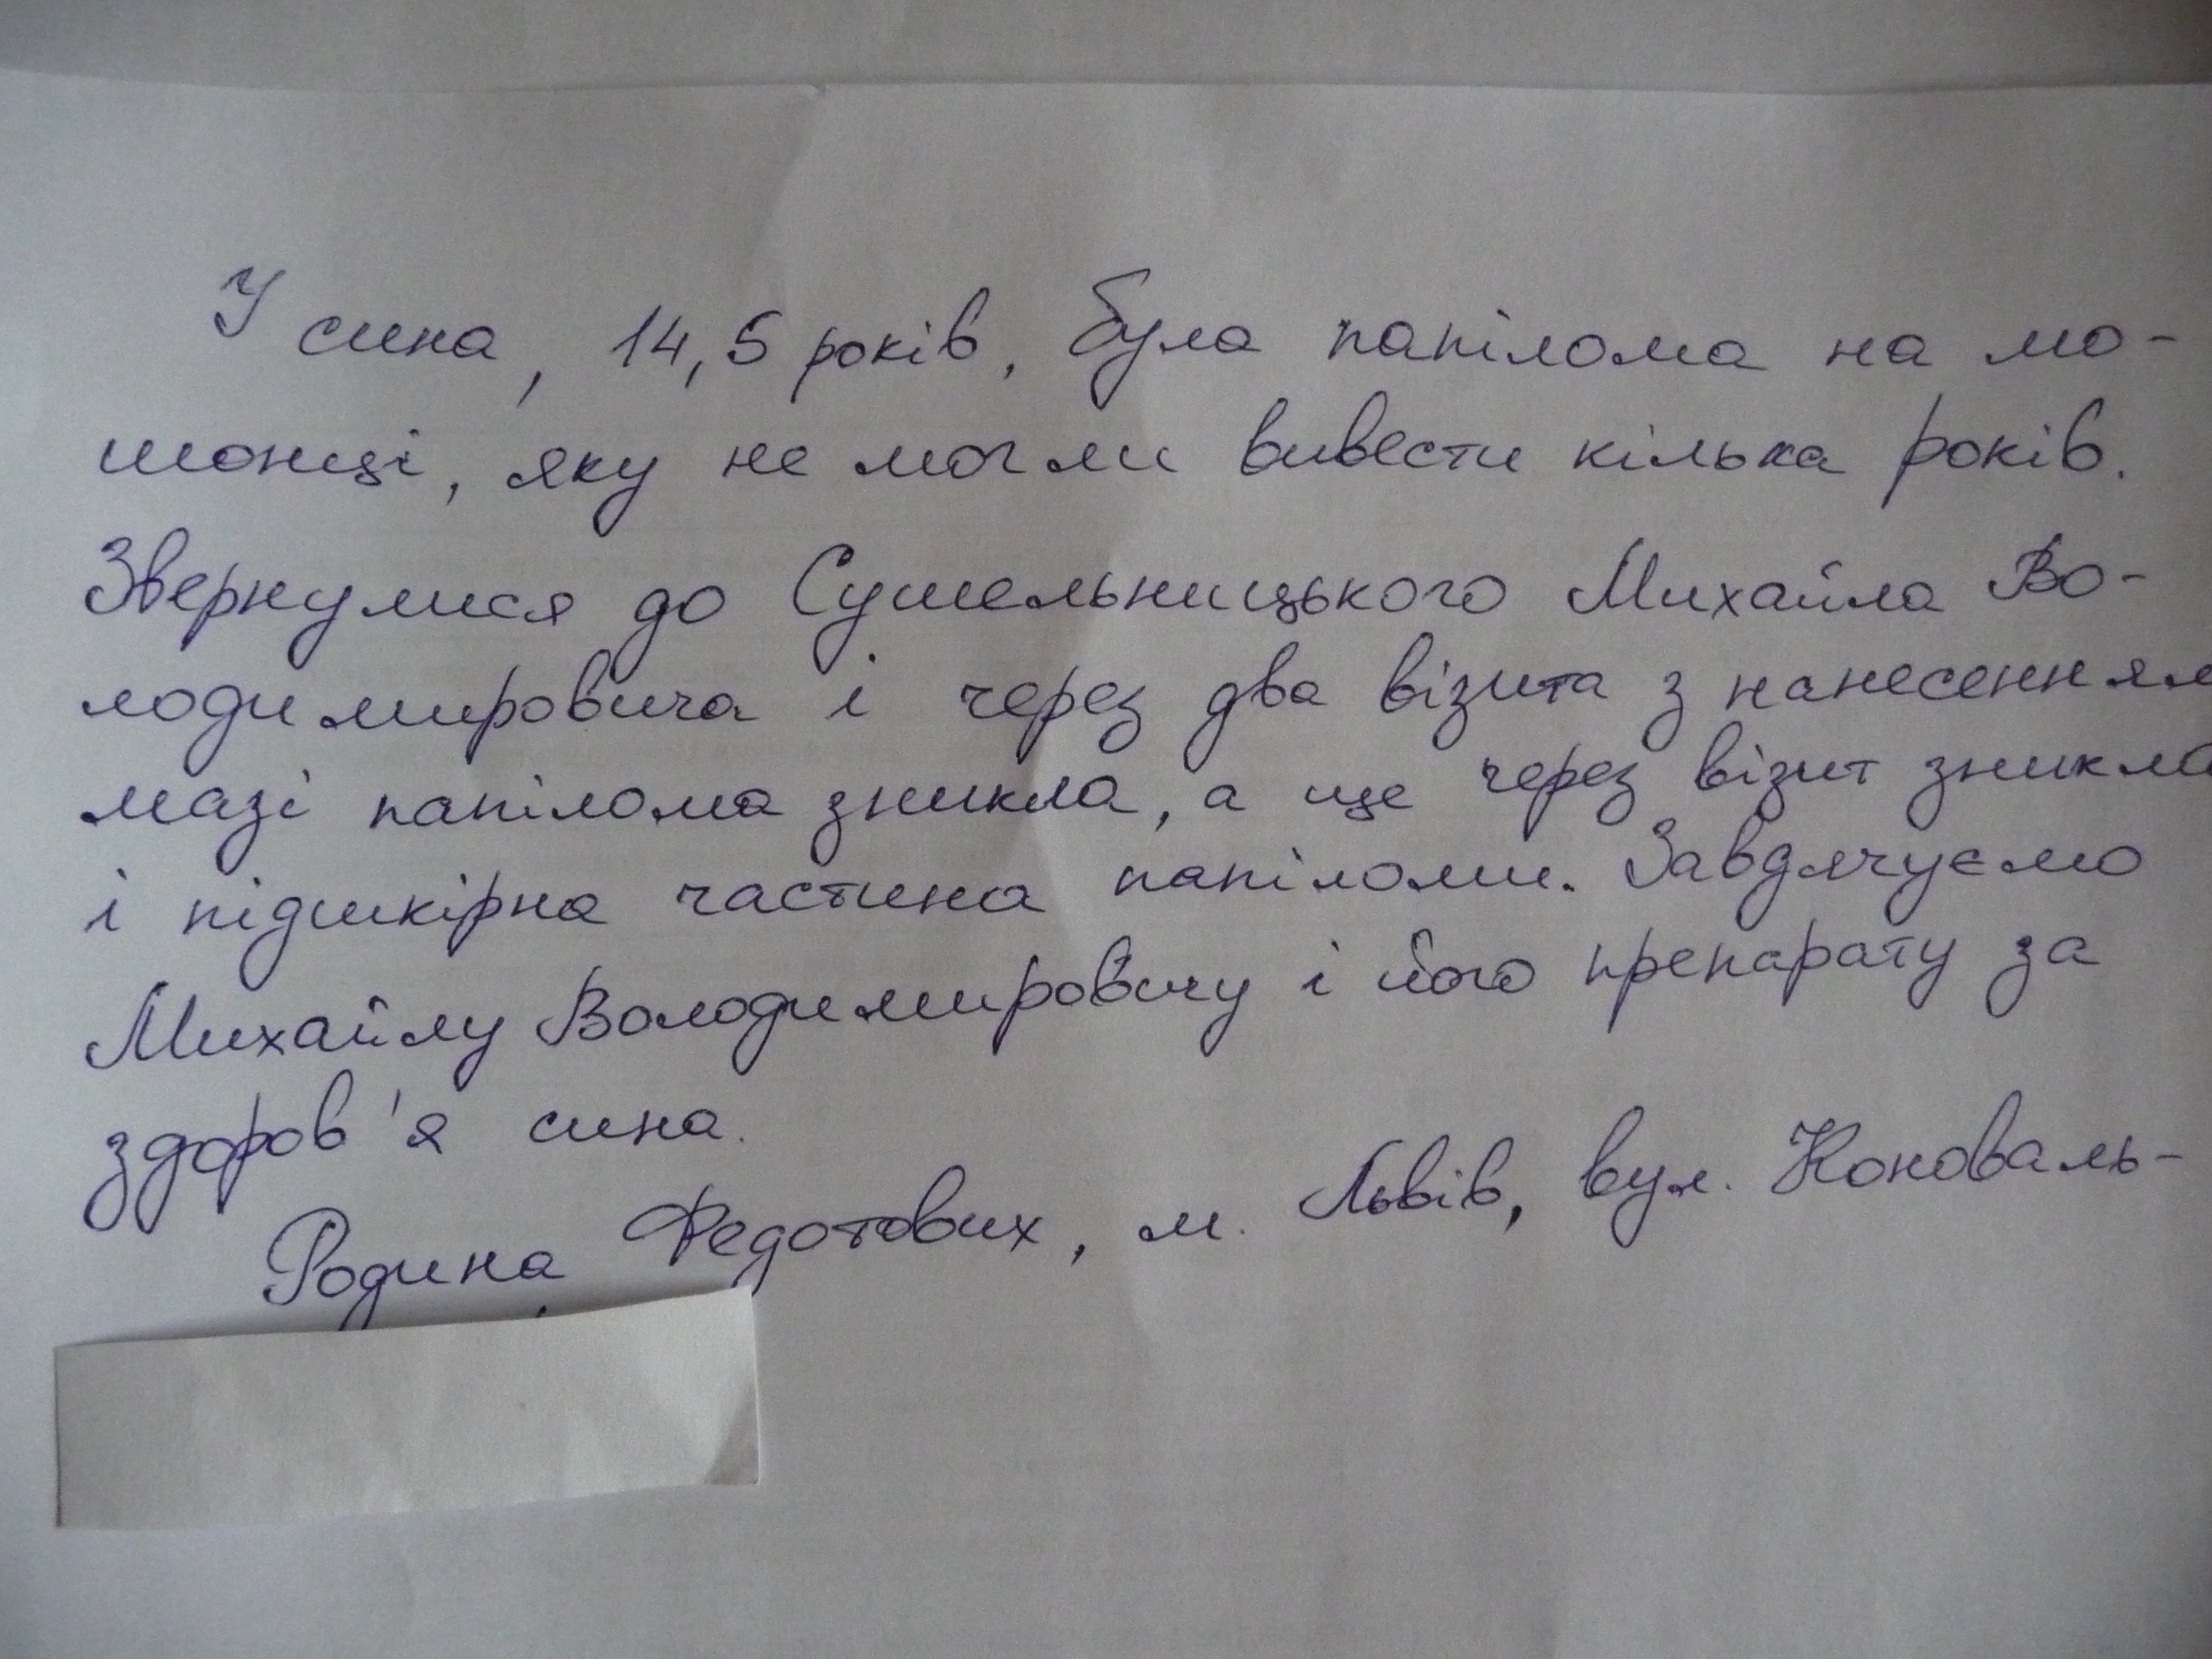 У сина, 14,5 років, була папілома на мо-
шонці, яку не могли вивести кілька років.
Звернулися до Сушельницького Михайла Во-
лодимировича і через два візита з нанесенням
мазі папілома зникла, а ще через візит зникла
і підшкірна частина папіломи. Завдячуємо
Михайлу Володимировичу і його препарату за
здоров'я сина.
Родина Федотових, м. Львів, вул. Коноваль-